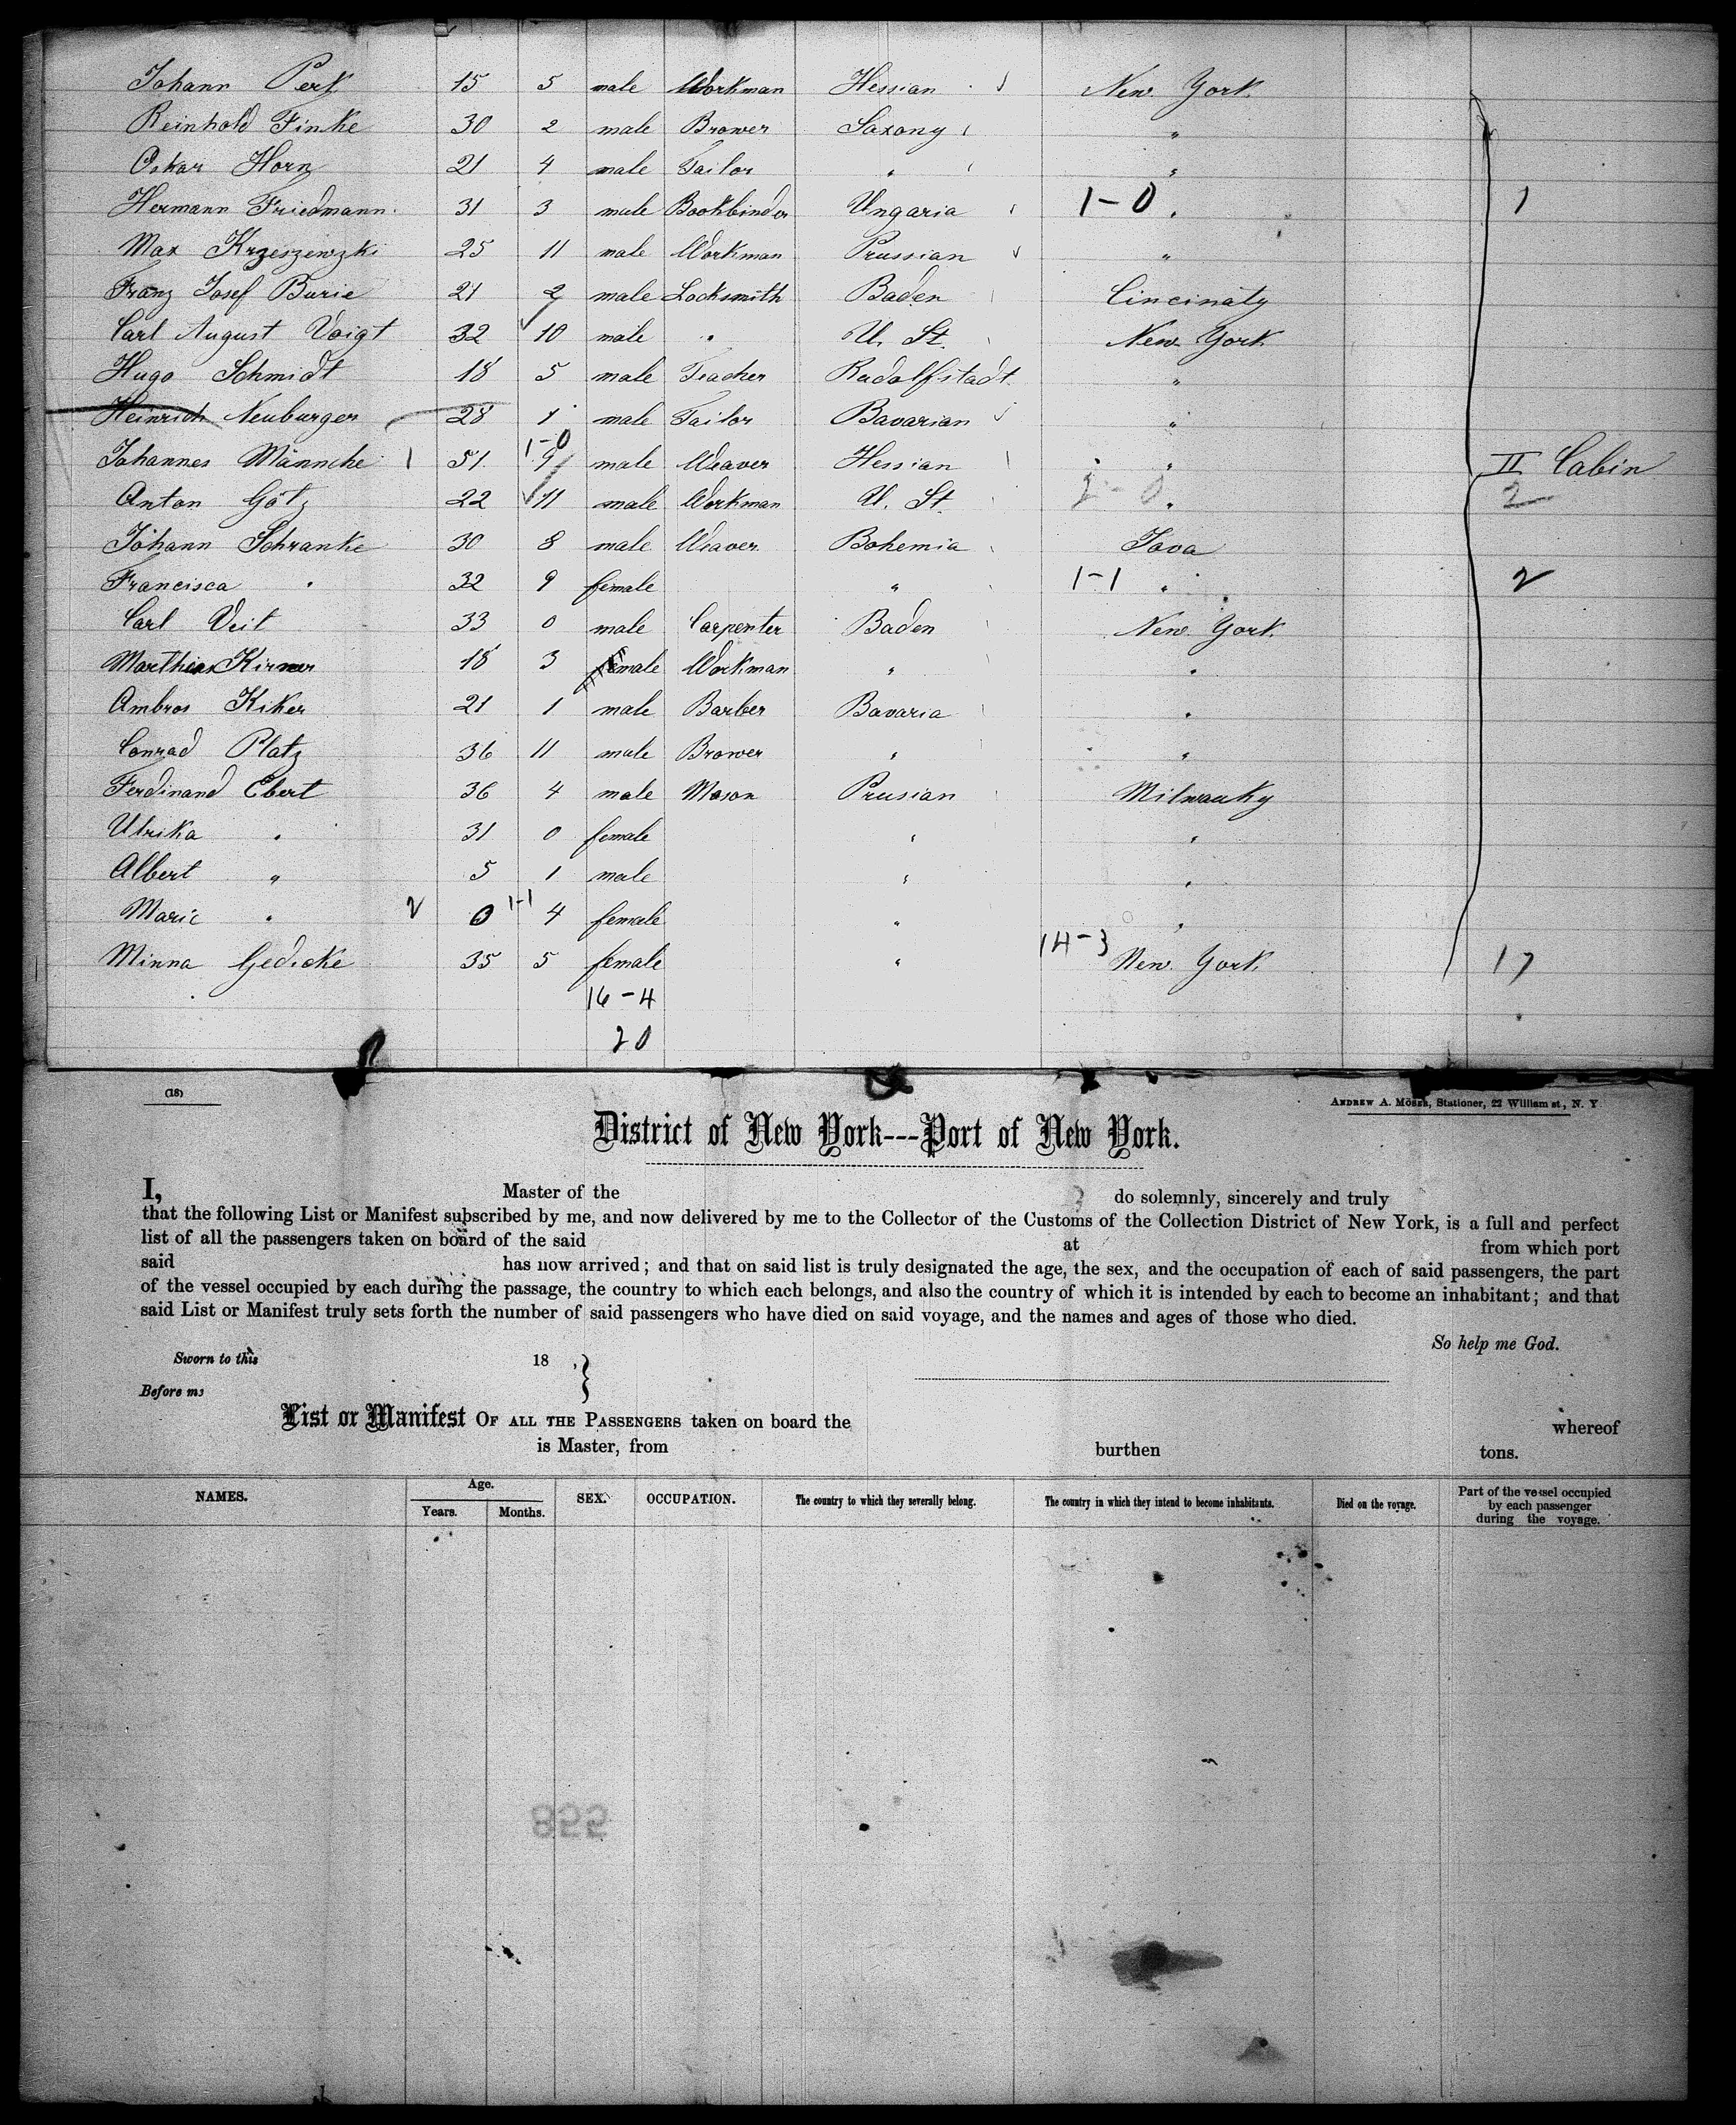 Johann Perk 15 5 male Workman Hessian New York
Reinhold Finke 30 2 male Brower Saxony "
Oskar Horn 21 4 male Tailor " "
Hermann Friedmann 31 3 male Bookbinder Ungaria 1-0 " 1
Max Krzeszewzki 25 11 male Workman Prussian "
Franz Josef Burie 21 2 male Locksmith Baden Cincinaty
Carl August Voigt 32 10 male " U. St. New York
Hugo Schmidt 18 5 male Teacher Rudolfstadt "
Heinrich Neuburger 28 1 male Tailor Bavarian "
1-0
Johannes Männche 1 51 9 male Weaver Hessian " II Cabin
Anton Götz 22 11 male Workman U. St " 2
Johann Schranke 30 8 male Weaver Bohemia Iova
Francisca " 32 9 female " 1-1 " 2
Carl Veit 33 0 male Carpenter Baden New York
Marthias Kirner 18 3 male Workman " "
Ambros Kiker 21 1 male Barber Bavaria "
Conrad Platz 36 11 male Brower " "
Ferdinand Ebert 36 4 male Mason Prusian Milwauky
Ulrika " 31 0 female " "
Albert " 5 1 male " "
Marie " 2 0 1-1 4 female " "
Minna Gedicke 35 5 female " 14-3 New York 17
16-4
20
(18)
ANDREW A. MÖSER, Stationer, 22 William st, N. Y
District of New York---Port of New York.
I, Master of the do solemnly, sincerely and truly
that the following List or Manifest subscribed by me, and now delivered by me to the Collector of the Customs of the Collection District of New York, is a full and perfect
list of all the passengers taken on board of the said at from which port
said has now arrived; and that on said list is truly designated the age, the sex, and the occupation of each of said passengers, the part
of the vessel occupied by each during the passage, the country to which each belongs, and also the country of which it is intended by each to become an inhabitant; and that
said List or Manifest truly sets forth the number of said passengers who have died on said voyage, and the names and ages of those who died.
So help me God.
Sworn to this 18 , }
Before me
List or Manifest OF ALL THE PASSENGERS taken on board the whereof
is Master, from burthen tons.
NAMES. Age. Years. Months. SEX. OCCUPATION. The country to which they severally belong. The country in which they intend to become inhabitants. Died on the voyage. Part of the vessel occupied by each passenger during the voyage.
855